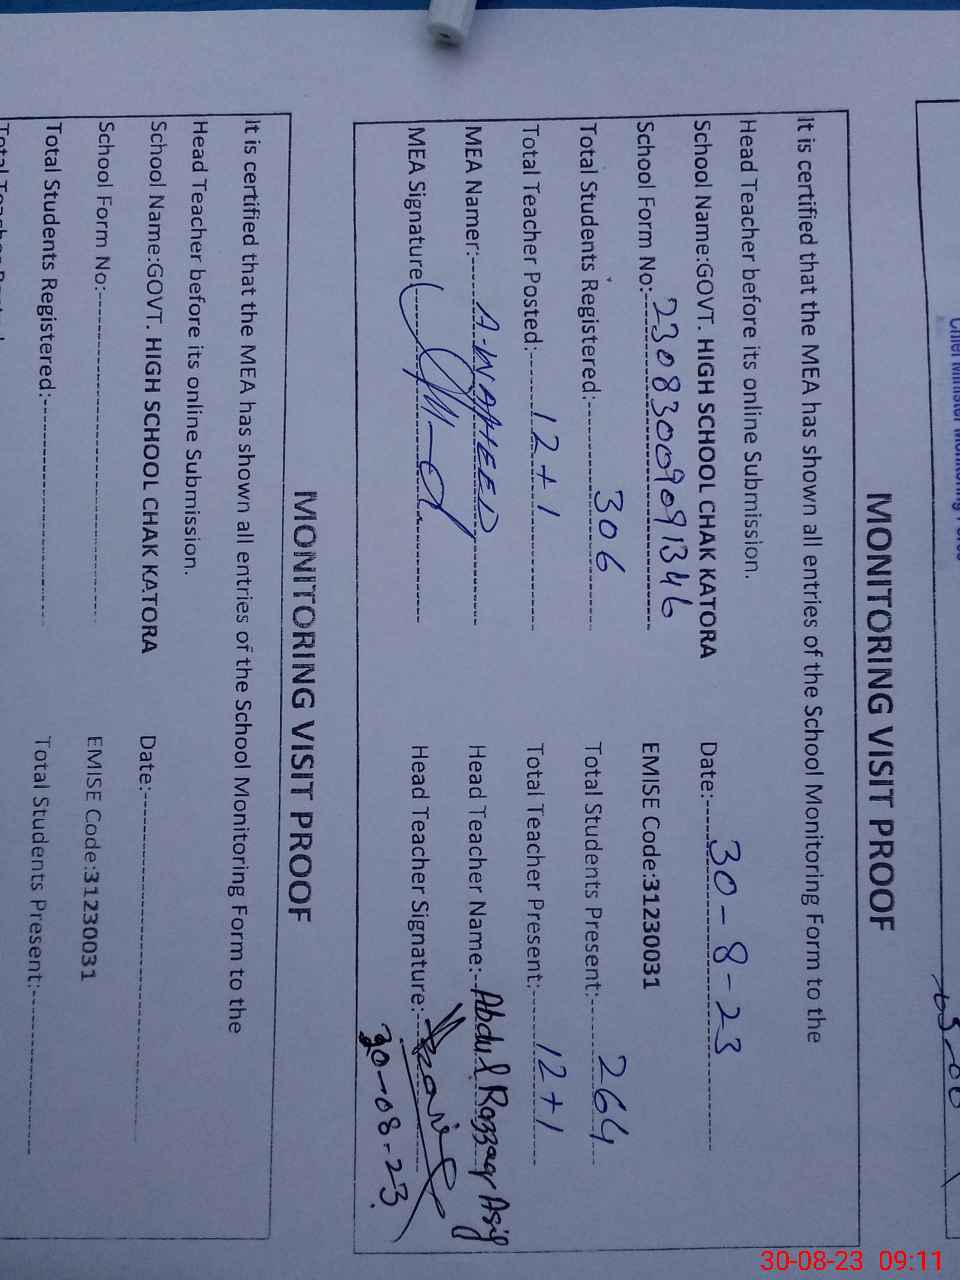 MONITORING VISIT PROOF
It is certified that the MEA has shown all entries of the School Monitoring Form to the
Head Teacher before its online Submission.
School Name:GOVT. HIGH SCHOOL CHAK KATORA Date:- 30-8-23
School Form No:- 23083009091346 EMISE Code:31230031
Total Students Registered:- 306 Total Students Present:- 264
Total Teacher Posted:- 12+1 Total Teacher Present:- 12+1
MEA Namer:- A-WAHEED Head Teacher Name:- Abdul Razzaq Asif
MEA Signature Head Teacher Signature:-
30-08-23
MONITORING VISIT PROOF
It is certified that the MEA has shown all entries of the School Monitoring Form to the
Head Teacher before its online Submission.
School Name:GOVT. HIGH SCHOOL CHAK KATORA Date:-
School Form No:- EMISE Code:31230031
Total Students Registered:- Total Students Present:-
30-08-23 09:11